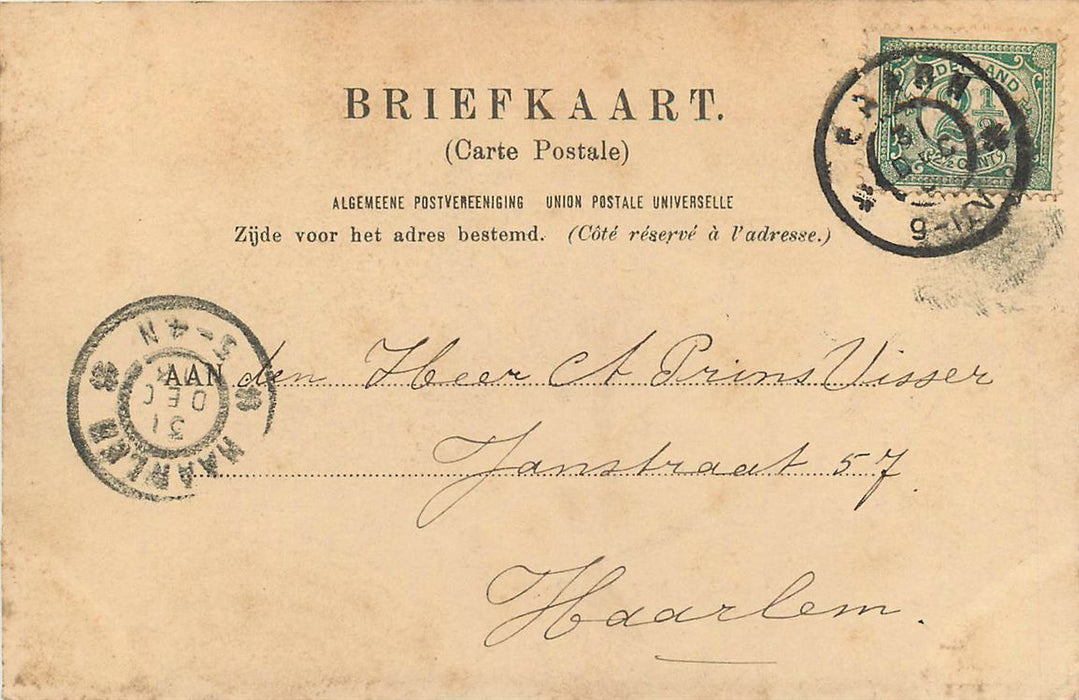 BRIEFKAART.
(Carte Postale)
ALGEMEENE POSTVEREENIGING UNION POSTALE UNIVERSELLE
Zijde voor het adres bestemd. (Côté réservé à l'adresse.)
NEDERLAND
2½
(2½ CENT)
BAARN
9-11V
AAN den Heer A Prins Visser
Jansstraat 57
Haarlem.
HAARLEM
31
DEC
3-4N